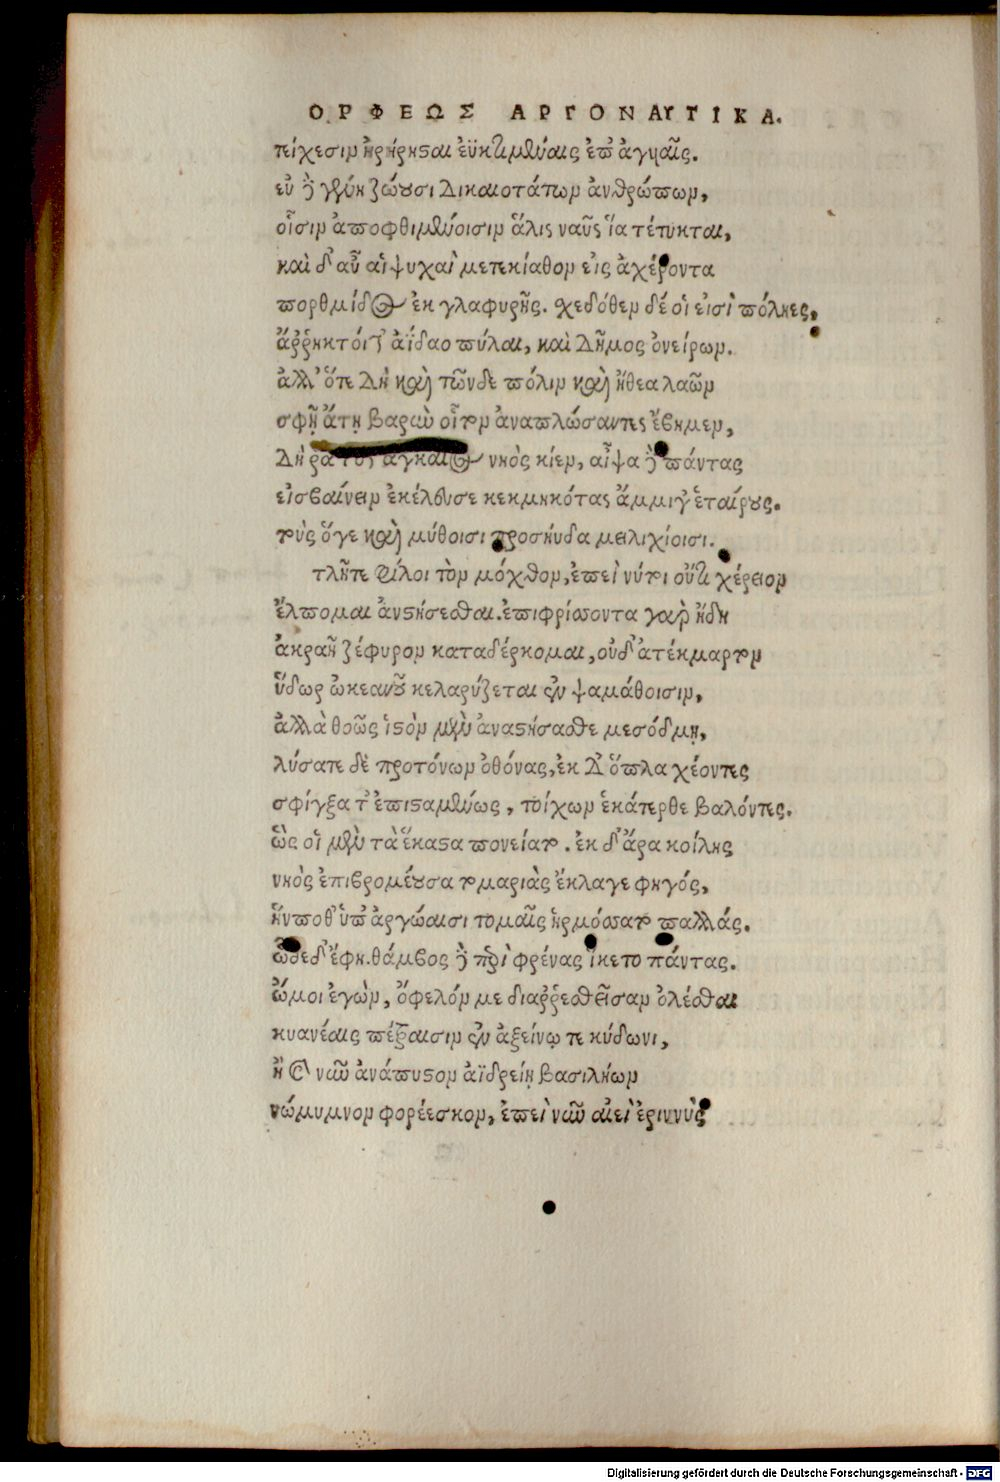 ΟΡΦΕΩΣ ΑΡΓΟΝΑΥΤΙΚΑ.
τείχεσιν ἠρήρηςαι ἐϋκτιμέναις ἐπ' ἀγυιαῖς.
ἐν δὲ γένη ζώουσι δικαιοτάτων ἀνθρώπων,
οἷσιν ἀποφθιμένοισιν ἅλις ναῦς ἵα τέτυκται,
καὶ δ' αὖ αἱ ψυχαὶ μετεκίαθον εἰς ἀχέροντα
πορθμίδος ἐκ γλαφυρῆς. χεδόθεν δέ οἱ εἰσὶ πόληες,
ἄῤῥηκτοί τ' ἀΐδαο πύλαι, καὶ δῆμος ὀνείρων.
ἀλλ' ὅτε δὴ καὶ τῶνδε πόλιν καὶ ἤθεα λαῶν
σφῇ ἄτῃ βαρὺν οἶτον ἀναπλώσαντες ἔβημεν,
δὴ ῥα τότ' ἀγκαῖος νηὸς κίεν, αἶψα δὲ πάντας
εἰσβαίνειν ἐκέλευσε κεκμηκότας ἄμμιγ' ἑταίρους.
τοὺς ὅγε καὶ μύθοισι προσηύδα μειλιχίοισι.
τλῆτε φίλοι τὸν μόχθον, ἐπεὶ νύτοι οὔτι χέρειον
ἔλπομαι ἀνςήσεσθαι. ἐπιφρίσσοντα γὰρ ἤδη
ἀκραῆ ζέφυρον καταδέρκομαι, οὐδ' ἀτέκμαρτον
ὕδωρ ὠκεανοῦ κελαρύζεται ἐν ψαμάθοισιν,
ἀλλὰ θοῶς ἱςὸν μὲν ἀναςήσασθε μεσόδμῃ,
λύσατε δὲ προτόνων ὀθόνας, ἐκ δ' ὅπλα χέοντες
σφίγξατ' ἐπιςαμένως, τοίχων ἑκάτερθε βαλόντες.
ὣς οἱ μὲν τὰ ἕκαςα πονείατο. ἐκ δ' ἄρα κοίλης
νηὸς ἐπιβρομέουσα τομαριὰς ἔκλαγε φηγός,
ἥν ποθ' ὑπ' ἀργώαισι τομαῖς ἡρμόσατο παλλάς.
ὧδε δ' ἔφη. θάμβος δὲ περὶ φρένας ἵκετο πάντας.
ὤμοι ἐγὼν, ὄφελόν με διαῤῥεσθεῖσαν ὀλέσθαι
κυανέαις πέτραισιν ἐν ἀξείνῳ τε κύδωνι,
ἢ νῦν ἀνάπυςον ἀϊδρείῃ βασιλήων
νώμυμνον φορέεσκον, ἐπεὶ νῦν αἰεὶ ἐριννὺς
Digitalisierung gefördert durch die Deutsche Forschungsgemeinschaft - DFG